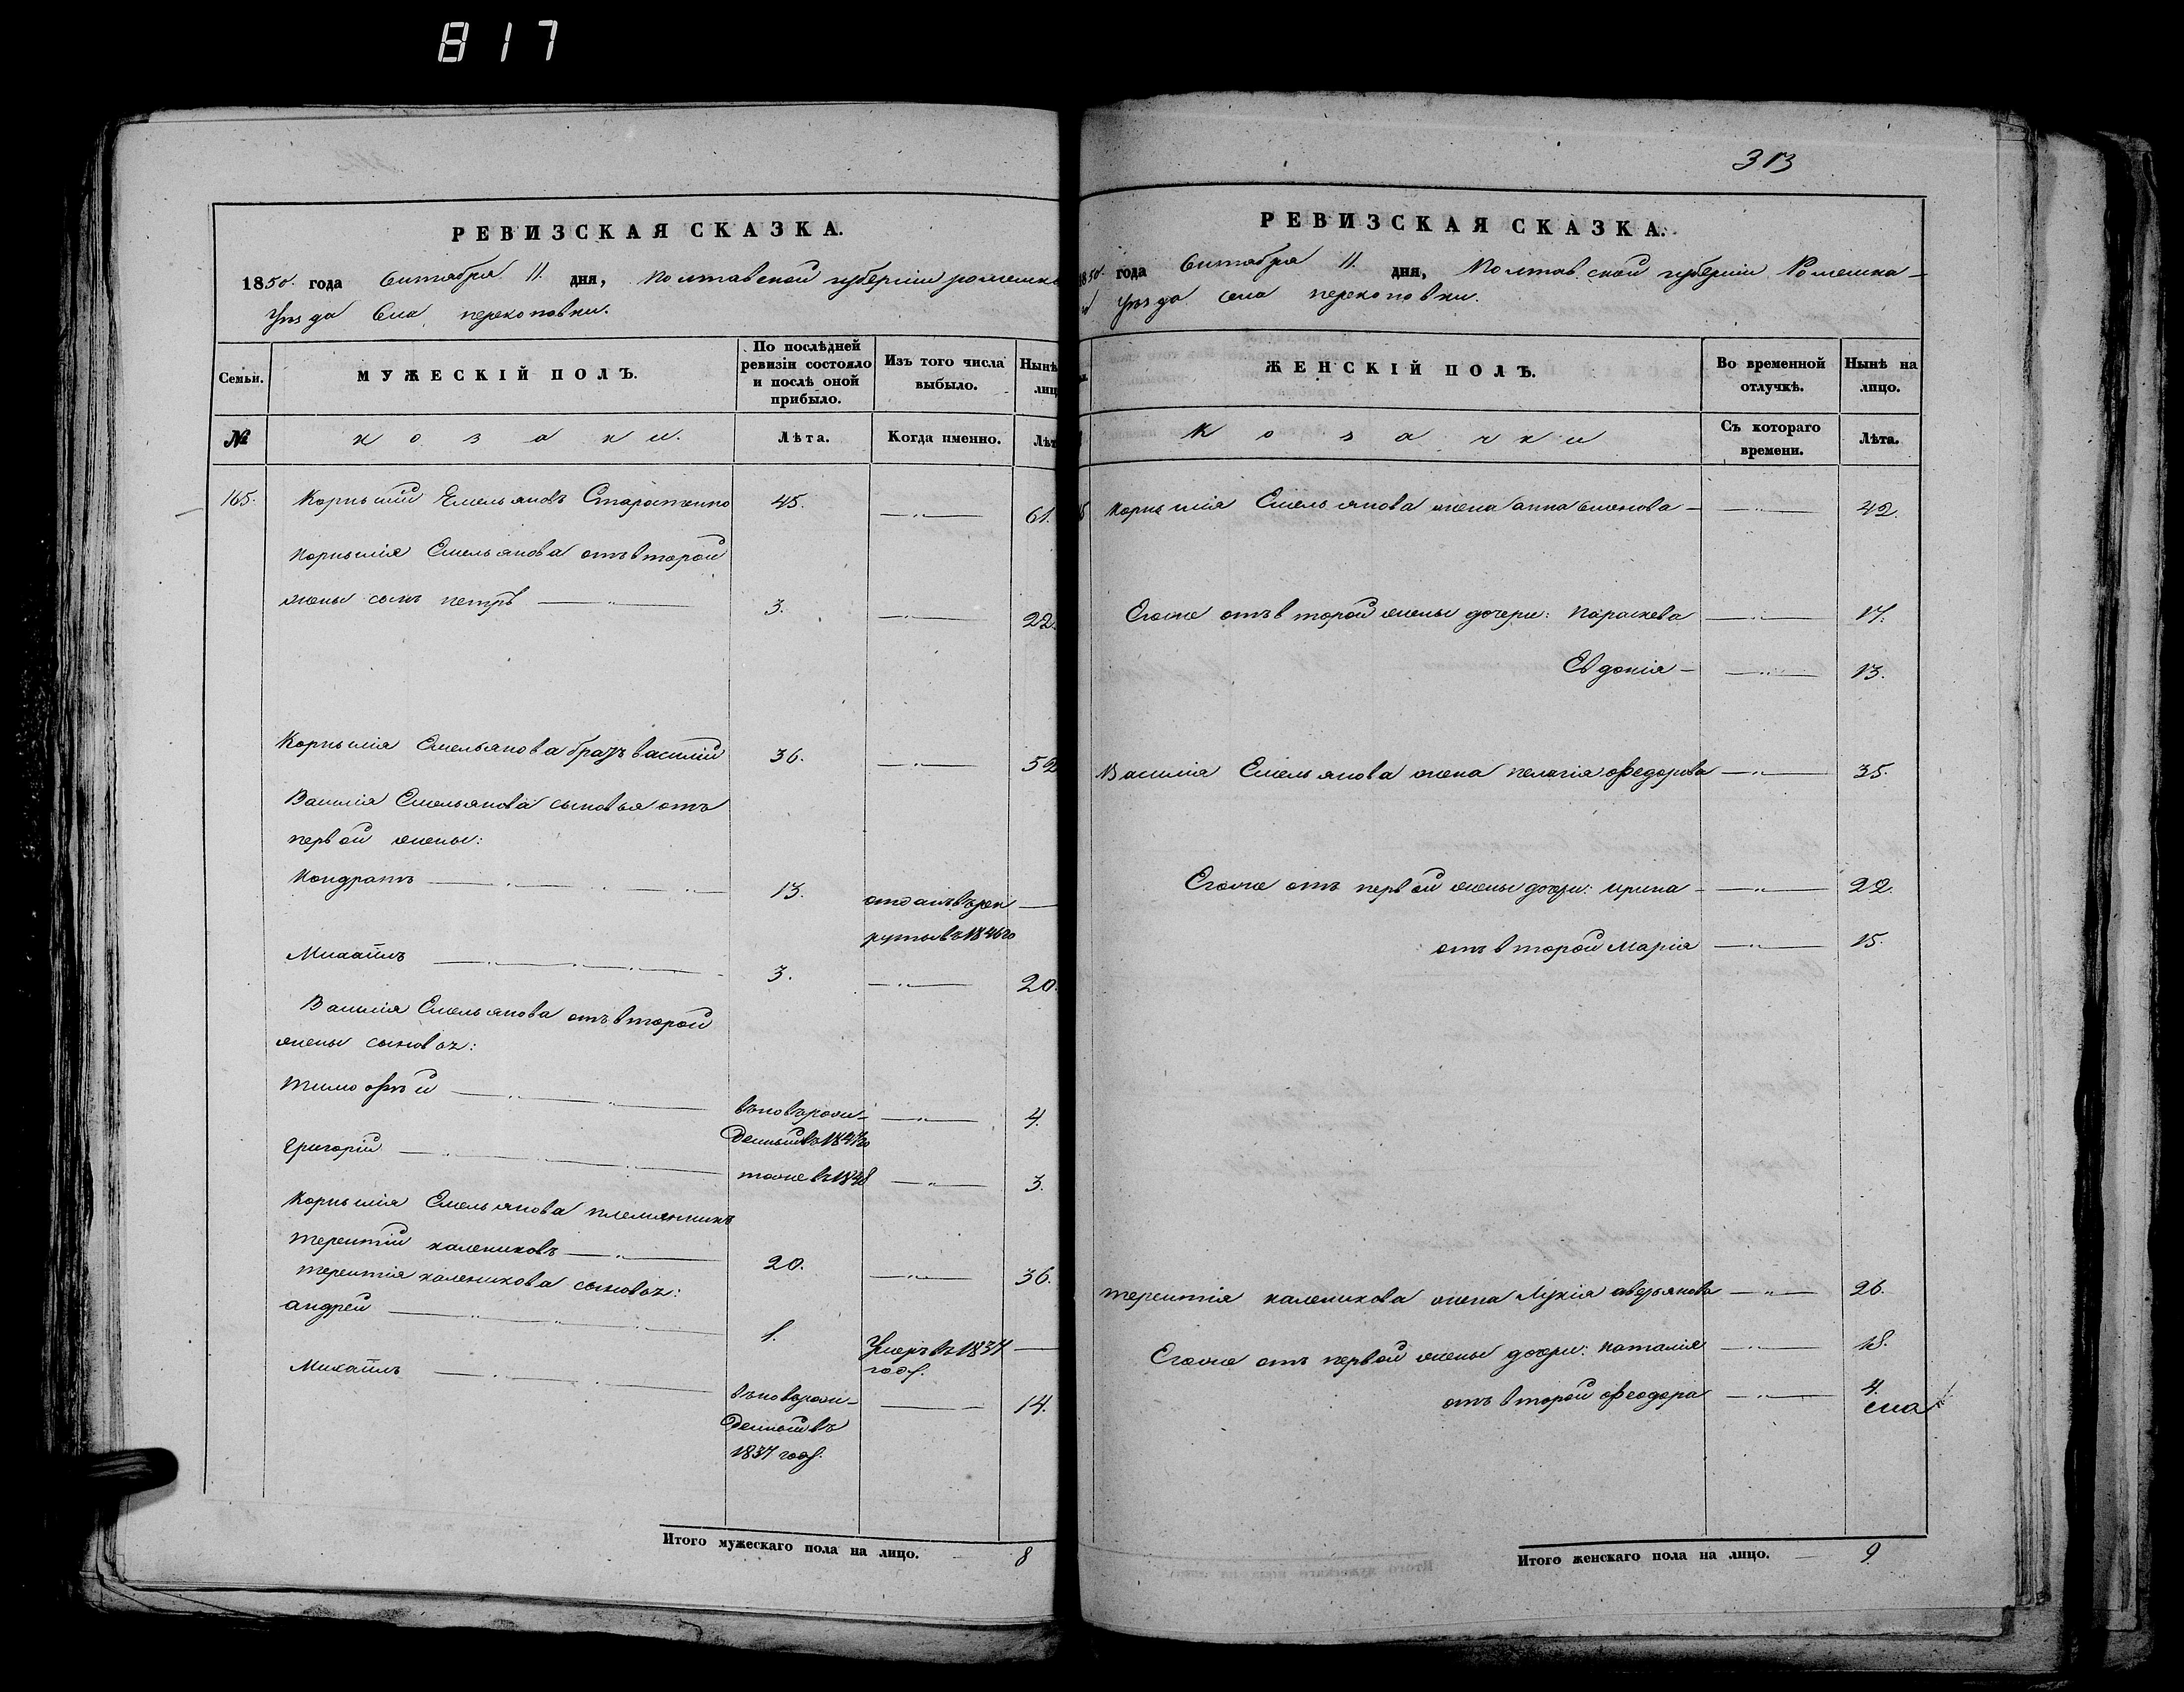 817
РЕВИЗСКАЯ СКАЗКА.
1850. года Октября 11. дня, Полтавской губерніи роменска
Уѣзда Села перекоповки.
Семьи.
МУЖЕСКІЙ ПОЛЪ.
По послѣдней ревизіи состояло и послѣ оной прибыло.
Изъ того числа выбыло.
Нынѣ
лиц
№
козаки.
Лѣта.
Когда именно.
Лѣт
165. Корнилій Емельяновъ 45. 61.
Корнилія Емельянова отъ второй
жены сынъ петръ 3. 22.
Корнилія Емельянова братъ василій 36. 52
Василія Емельянова сыновья отъ
первой жены:
Кондратъ 13. отданъ въ рек
руты въ 1846 го
Михаилъ 3. 20.
Василія Емельянова отъ второй
жены сыновья:
тимофѣй вновь рож-
денный въ 1847 го 4.
григорій тоже въ 1848 3.
Корнилія Емельянова племянникъ
терентій калениковъ 20. 36.
терентія каленикова сыновья:
андрей 1. Умеръ въ 1837
году.
Михаилъ вновь рож-
денный въ
1837 году. 14.
Итого мужескаго пола на лицо. 8
313
РЕВИЗСКАЯ СКАЗКА.
1850 года Октября 11. дня, Полтавской губерніи Роменска-
Уѣзда села перекоповки.
ЖЕНСКІЙ ПОЛЪ.
Во временной отлучкѣ.
Нынѣ на лицо.
Козачки
Съ котораго времени.
Лѣта.
Корнилія Емельянова жена анна семенова 42.
Егоже отъ второй жены дочери: параскева 17.
Евдокія 13.
Василія Емельянова жена пелагія федорова 35.
Егоже отъ первой жены дочери: ирина 22.
отъ второй марія 15.
терентія каленикова жена Лукія аверьянова 26.
Егоже отъ первой жены дочери: наталія 18.
отъ второй феодора 4.
Итого женскаго пола на лицо. 9